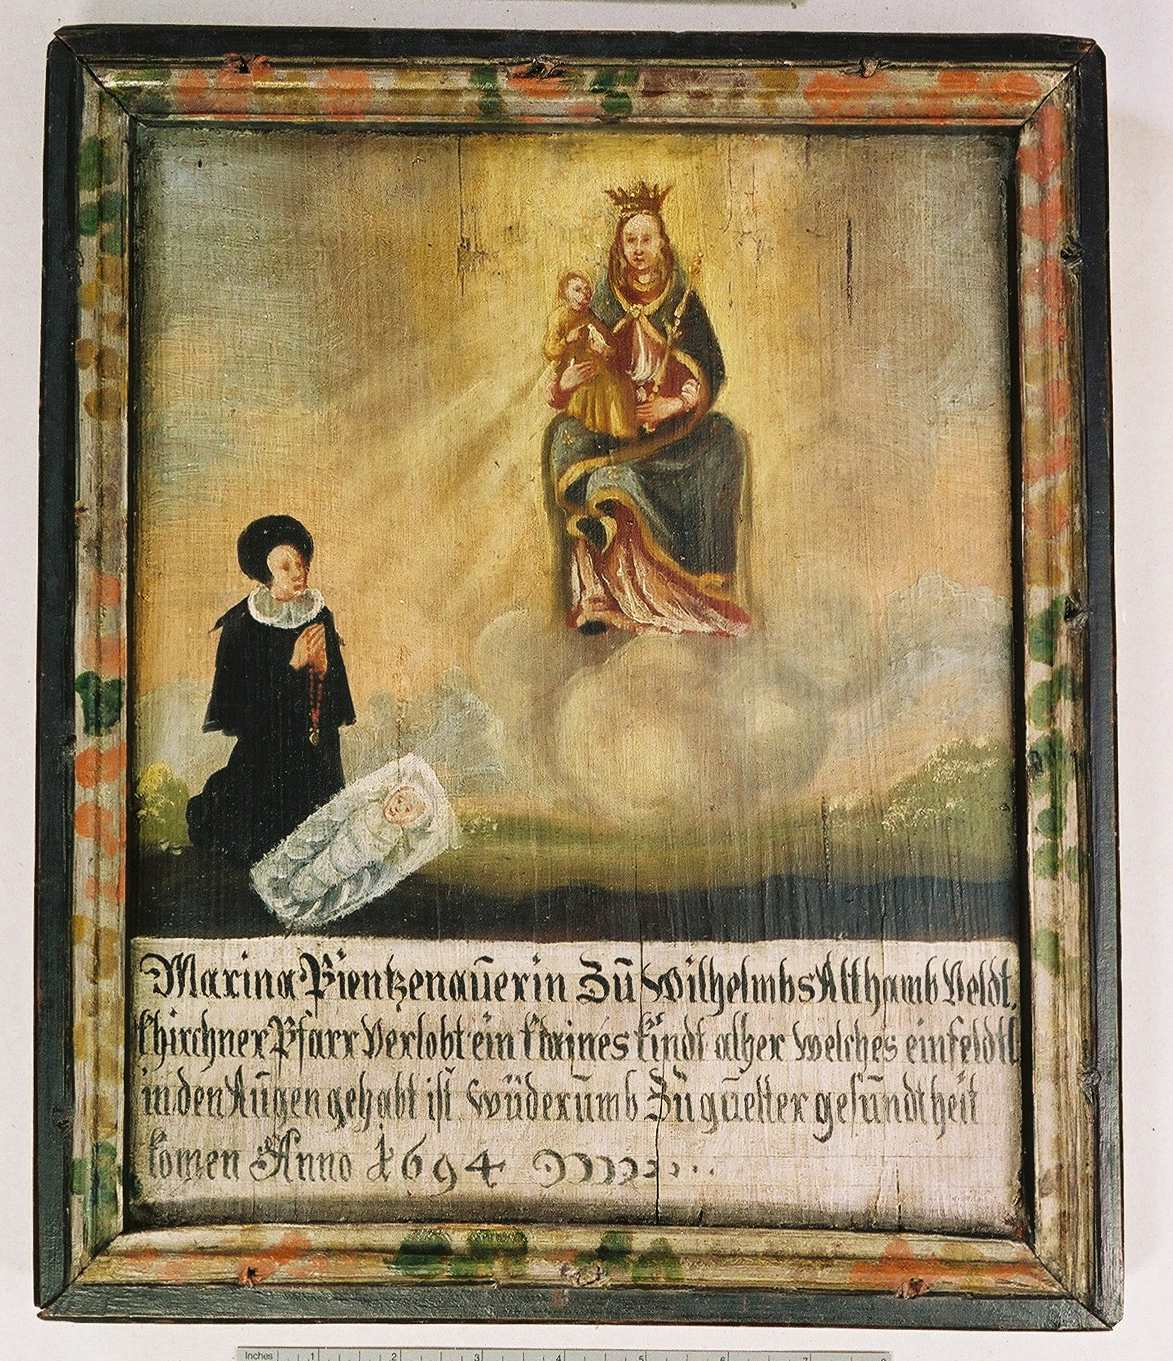 Marina Pientzenaűerin Zű Wilhelmbs Althamb Veldt,
khirchner Pfarr Verlobt ein klaines kindt alher welches ein feldtl
in den Aűgen gehabt ist wűderűmb Zű gűetter gesűndtheit
komen Anno 1694
Inches 1 2 3 4 5 6 7 8